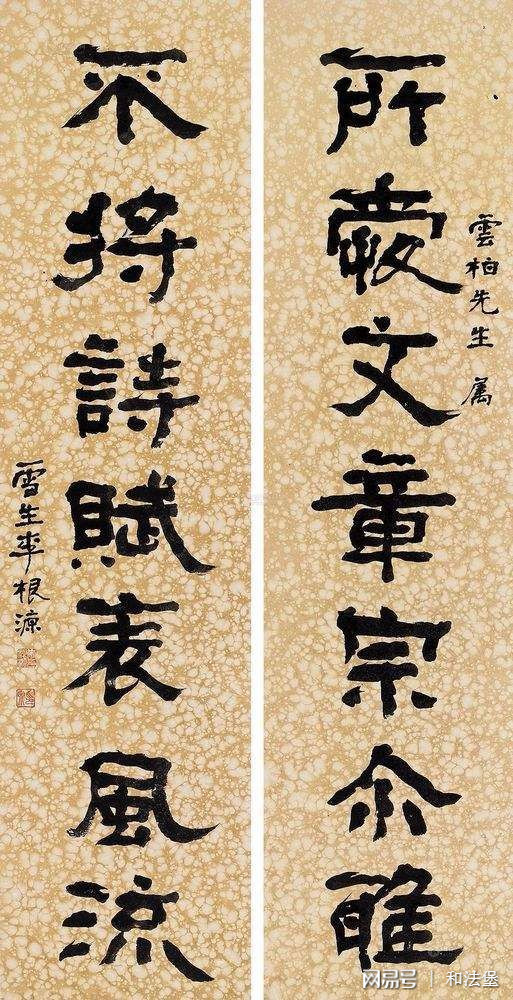 雲柏先生 属
所愛文章宗尒雅
不将詩賦表風流
雪生李根源
网易号 | 和法堡